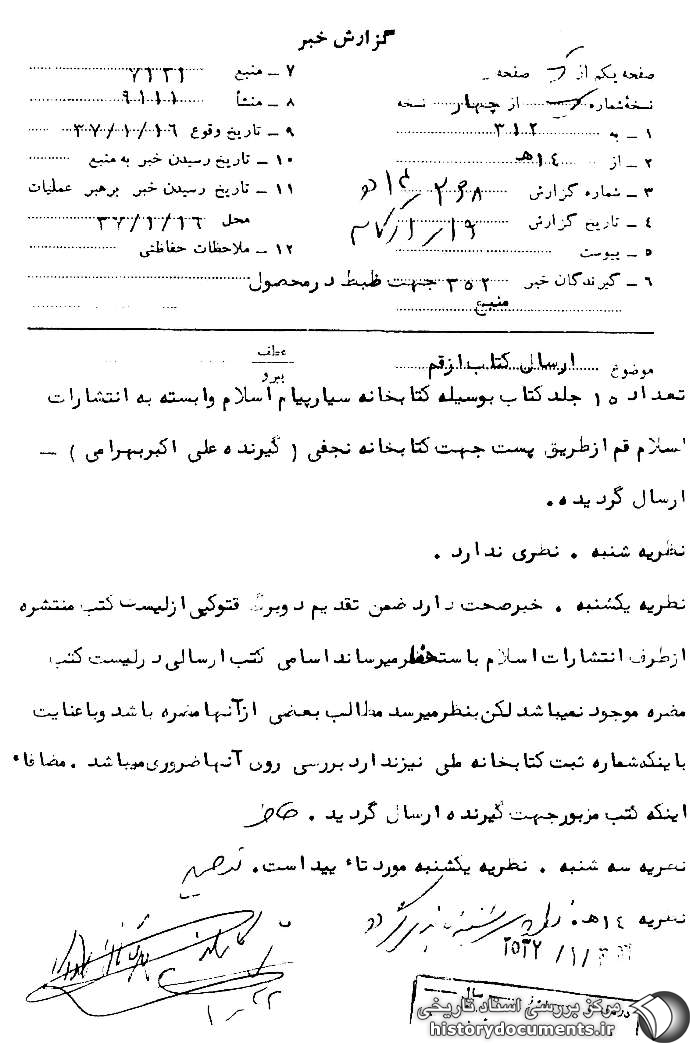 گزارش خبر
صفحه یکم از صفحه
نسخهٔ شماره از چهار نسخه
۱ ـ به ۳۱۲
۲ ـ از ۱۴ه
۳ ـ شماره گزارش ۲۶۸
۴ ـ تاریخ گزارش
۵ ـ پیوست
۶ ـ گیرندگان خبر ۳۵۲ جهت ضبط در محصول
منبع
۷ ـ منبع ۷۱۳۱
۸ ـ منشأ ۹۱۱۱
۹ ـ تاریخ وقوع ۳۷/۱/۱۶
۱۰ ـ تاریخ رسیدن خبر به منبع
۱۱ ـ تاریخ رسیدن خبر برهبر عملیات
محل ۳۷/۱/۱۶
۱۲ ـ ملاحظات حفاظتی
موضوع ارسال کتاب از قم
عطف
پیرو
تعداد ۱۵ جلد کتاب بوسیله کتابخانه سیار پیام اسلام وابسته به انتشارات
اسلام قم از طریق پست جهت کتابخانه نجفی ( گیرنده علی اکبر بهرامی ) ـ
ارسال گردیده.
نظریه شنبه . نظری ندارد .
نظریه یکشنبه . خبر صحت دارد ضمن تقدیم دو برگ فتوکپی از لیست کتب منتشره
از طرف انتشارات اسلام باستحضار میرساند اسامی کتب ارسالی در لیست کتب
مضره موجود نمیباشد لکن بنظر میرسد مطالب بعضی از آنها مضره باشد و با عنایت
باینکه شماره ثبت کتابخانه ملی نیز ندارد بررسی روی آنها ضروری میباشد . مضافاً
اینکه کتب مزبور جهت گیرنده ارسال گردید .
نظریه سه شنبه . نظریه یکشنبه مورد تائید است.
نظریه ۱۴ه.
مرکز بررسی اسناد تاریخی
historydocuments.ir